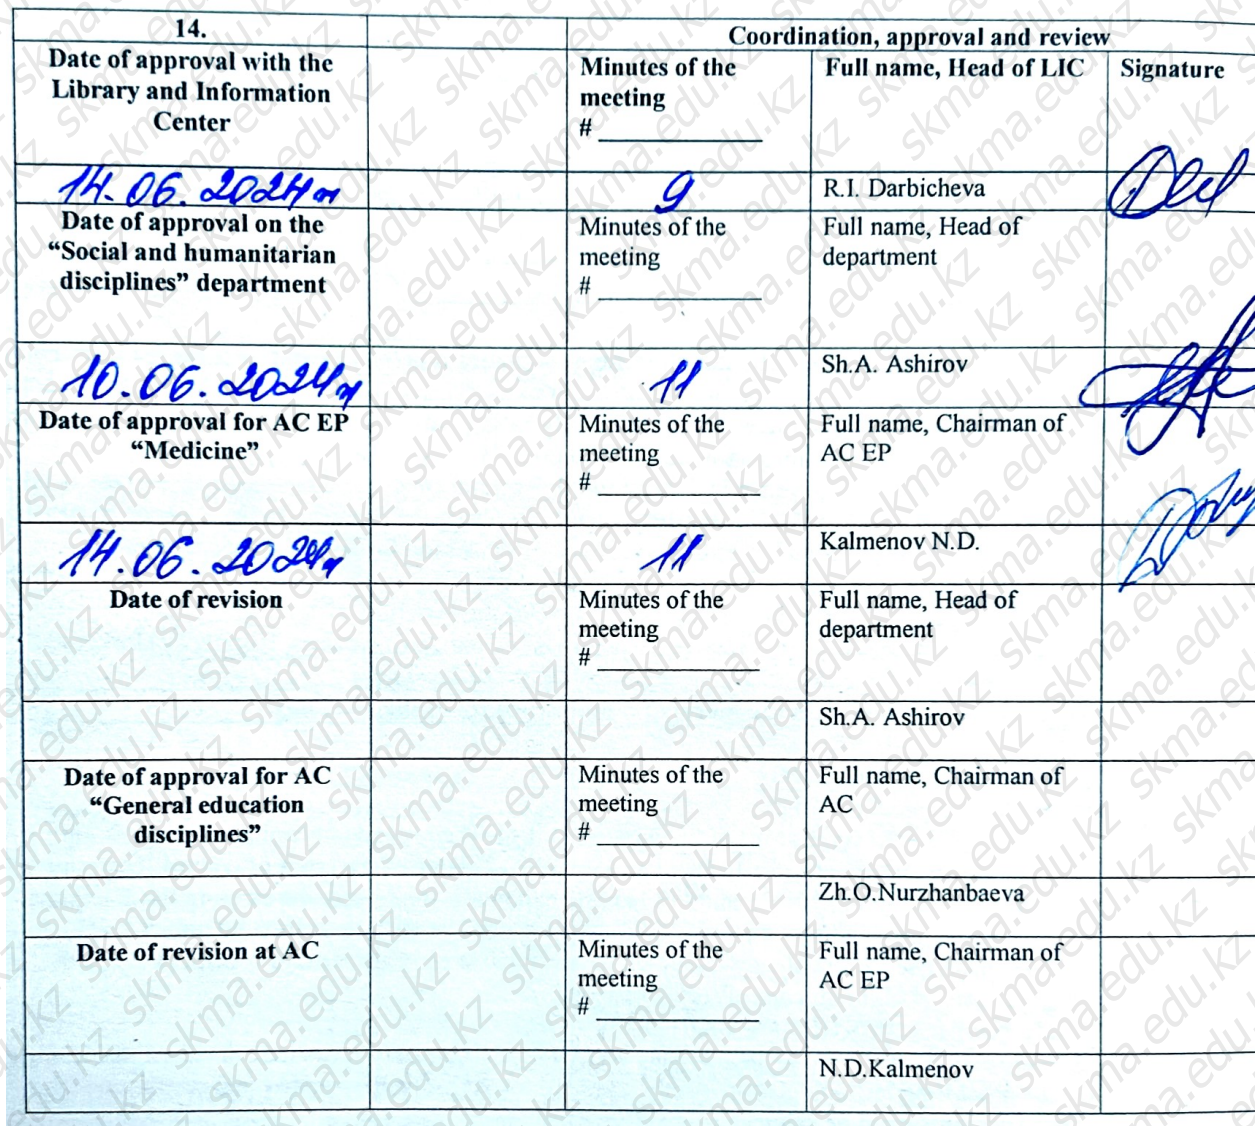 14.
Coordination, approval and review
Date of approval with the
Library and Information
Center
Minutes of the
meeting
# ____________
Full name, Head of LIC
Signature
14.06.2024г
9
R.I. Darbicheva
Date of approval on the
“Social and humanitarian
disciplines” department
Minutes of the
meeting
# ____________
Full name, Head of
department
10.06.2024г
11
Sh.A. Ashirov
Date of approval for AC EP
“Medicine”
Minutes of the
meeting
# ____________
Full name, Chairman of
AC EP
14.06.2024г
11
Kalmenov N.D.
Date of revision
Minutes of the
meeting
# ____________
Full name, Head of
department
Sh.A. Ashirov
Date of approval for AC
“General education
disciplines”
Minutes of the
meeting
# ____________
Full name, Chairman of
AC
Zh.O.Nurzhanbaeva
Date of revision at AC
Minutes of the
meeting
# ____________
Full name, Chairman of
AC EP
N.D.Kalmenov
skma.edu.kz